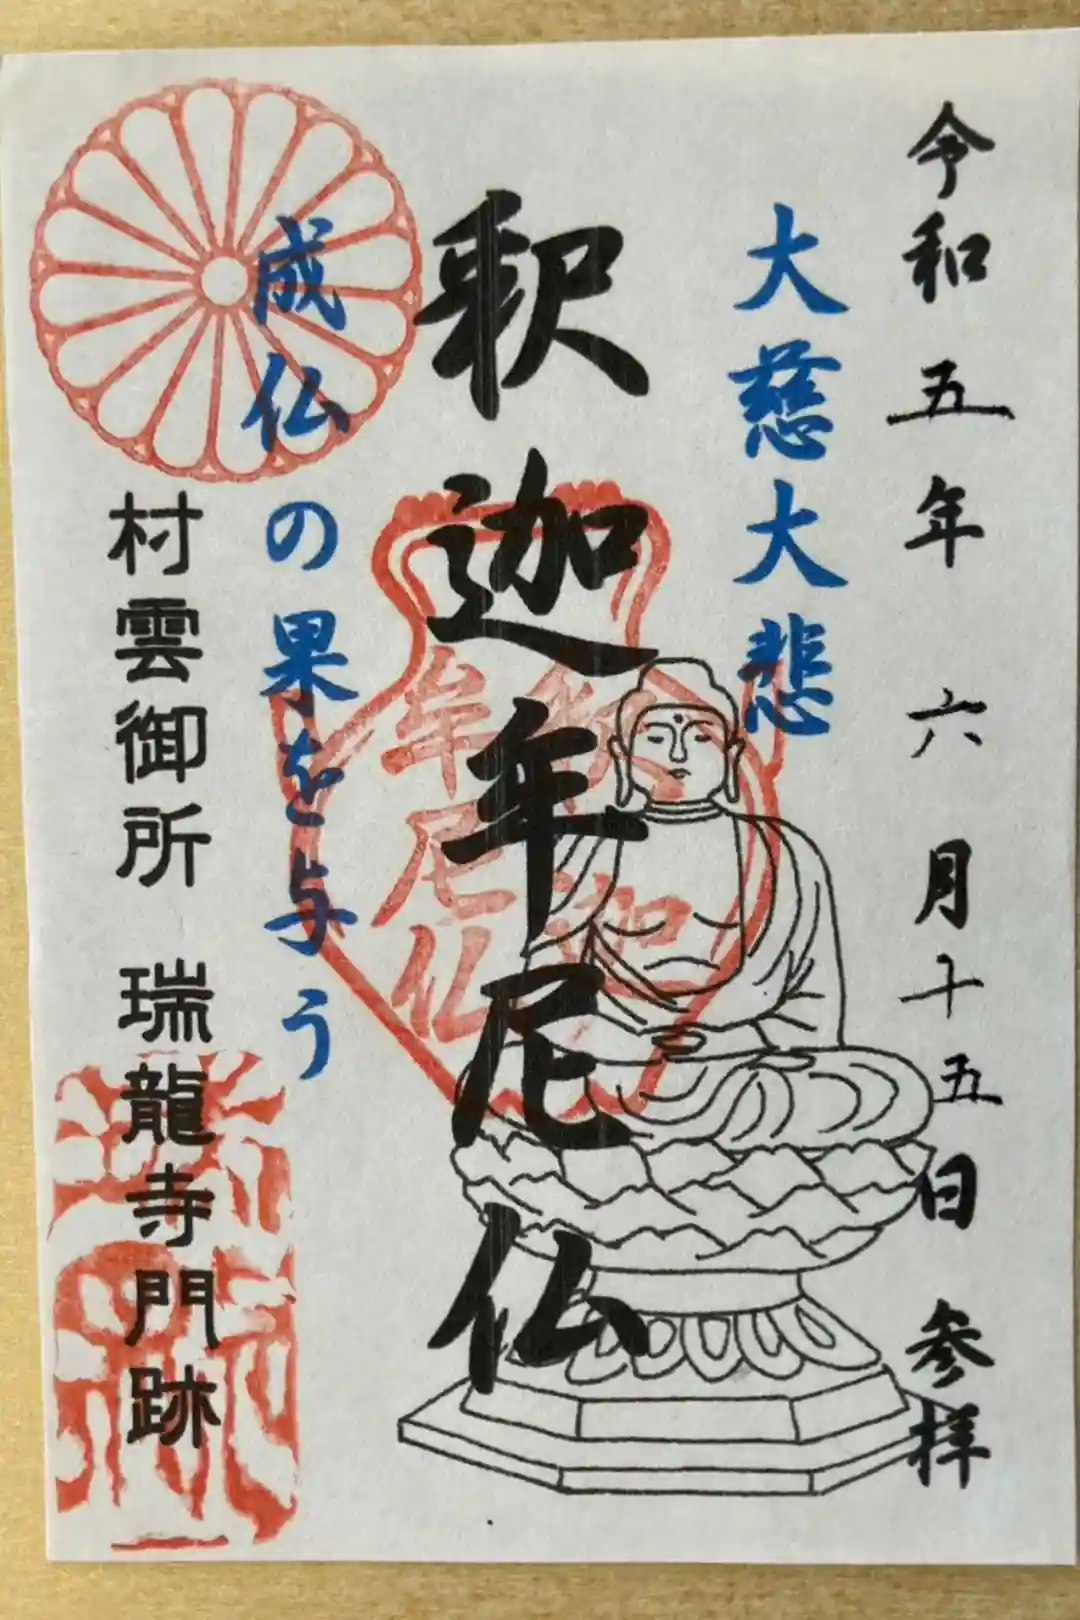 令和五年 六月十五日 参拝
大慈大悲
釈迦牟尼仏
釈迦
牟尼仏
成仏の果を与う
村雲御所 瑞龍寺門跡